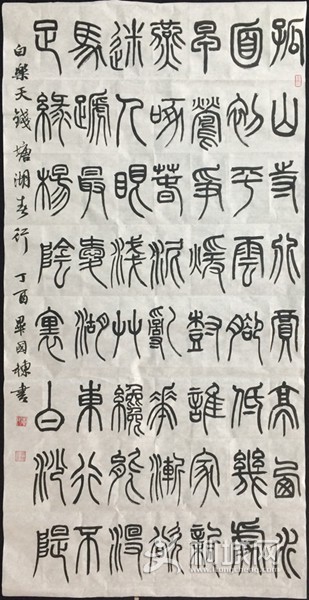 孤山寺北賈亭西水
面初平雲腳低幾處
早鶯爭暖樹誰家新
燕啄春泥亂花漸欲
迷人眼淺草纔能沒
馬蹄最愛湖東行不
足綠楊陰裏白沙隄
白樂天錢塘湖春行 丁酉 畢国棟書
聊城网